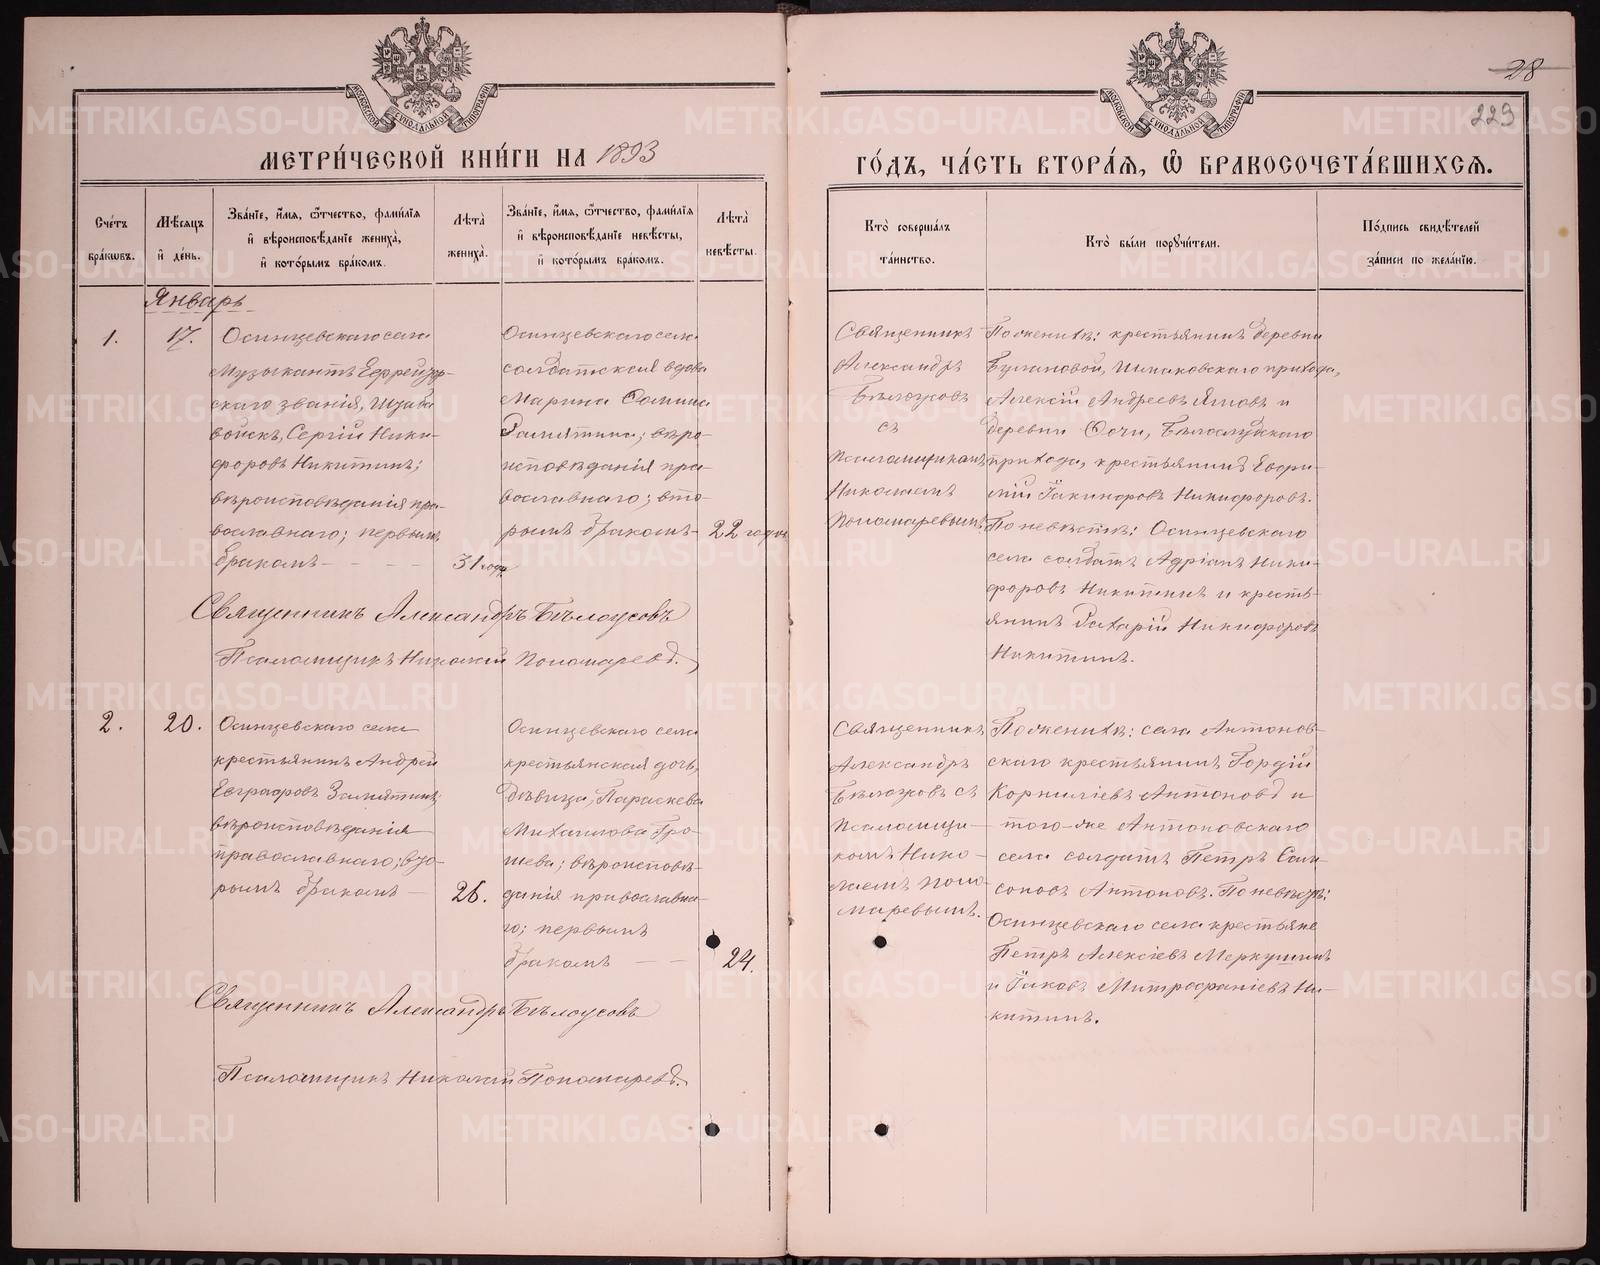 28
223
МОСКОВСКОЙ СѴНОДАЛЬНОЙ ТИПОГРАФІИ
МОСКОВСКОЙ СѴНОДАЛЬНОЙ ТИПОГРАФІИ
МЕТРИ́ЧЕСКОЙ КНИ́ГИ НА 1893
ГО́ДЪ, ЧА́СТЬ ВТОРА́Ѧ, Ѿ БРАКОСОЧЕТА́ВШИХСѦ.
Сче́тъ бра́кѡвъ.
Мѣ́сѧцъ и҆ де́нь.
Зва́нїе, и҆́мѧ, ѻ҆́тчество, фами́лїѧ
и҆ вѣроисповѣ́данїе жениха̀,
и҆ кото́рымъ бра́комъ.
Лѣта̀ жениха̀.
Зва́нїе, и҆́мѧ, ѻ҆́тчество, фами́лїѧ
и҆ вѣроисповѣ́данїе невѣ́сты,
и҆ кото́рымъ бра́комъ.
Лѣта̀ невѣ́сты.
Кто̀ соверша́лъ
та́инство.
Кто̀ бы́ли порꙋчи́тели.
По́дпись свидѣ́телей
за́писи по жела́нїю.
Январь
1.
17.
Осинцевскаго села
музыкантъ Ефрейтор-
скаго званія,
войскъ, Сергій Ники-
форовъ Никитинъ;
вѣроисповѣданія пра-
вославнаго; первымъ
бракомъ - - - -
31 годъ
Осинцевскаго села
солдатская вдова
Марина
Замятина; вѣро-
исповѣданія пра-
вославнаго; вто-
рымъ бракомъ -
22 годовъ
Священникъ
Александръ
Бѣлоусовъ
съ
псаломщикомъ
Николаемъ
Пономаревымъ
По женихѣ: крестьянинъ деревни
Булановой, прихода,
Алексій Андреевъ и
деревни Бѣлослудскаго
прихода, крестьянинъ
Никифоровъ.
По невѣстѣ: Осинцевскаго
села солдатъ Адріанъ Ники-
форовъ Никитинъ и кресть-
янинъ Захарій Никифоровъ
Никитинъ.
Священникъ Александръ Бѣлоусовъ
Псаломщикъ Николай Пономаревъ.
2.
20.
Осинцевскаго села
крестьянинъ Андрей
Евграфовъ Замятинъ,
вѣроисповѣданія
православнаго; вто-
рымъ бракомъ —
26.
Осинцевскаго села
крестьянская дочь,
дѣвица, Параскева
Михаилова Гро-
шева; вѣроисповѣ-
данія православна-
го; первымъ
бракомъ — —
24.
Священникъ
Александръ
Бѣлоусовъ съ
псаломщи-
комъ Нико-
лаемъ Поно-
маревымъ.
По женихѣ: села Антонов-
скаго крестьянинъ Гордій
Корниліевъ Антоновъ и
того-же Антоновскаго
села солдатъ Петръ Сам-
соновъ Антоновъ. По невѣстѣ:
Осинцевскаго села крестьяне
Петръ Алексіевъ Меркушинъ
и Іаковъ Митрофаніевъ Ни-
китинъ.
Священникъ Александръ Бѣлоусовъ
Псаломщикъ Николай Пономаревъ.
METRIKI.GASO-URAL.RU